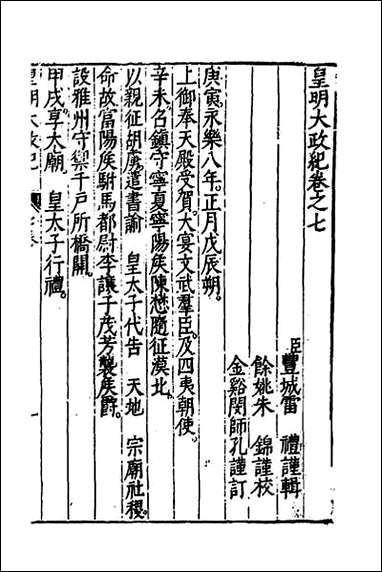 皇明大政紀卷之七
臣豐城雷 禮謹輯
餘姚朱 錦謹校
金谿閔師孔謹訂
庚寅永樂八年。正月戊辰朔。
上御奉天殿受賀。大宴文武羣臣。及四夷朝使。
辛未。召鎮守寧夏寧陽侯陳懋隨征漠北。
以親征胡虜遣書諭 皇太子代告 天地 宗廟社稷。
命故富陽侯駙馬都尉李讓子茂芳襲侯爵。
設雅州守禦千戶所橋關。
甲戌。享太廟。 皇太子行禮。
皇明大政紀